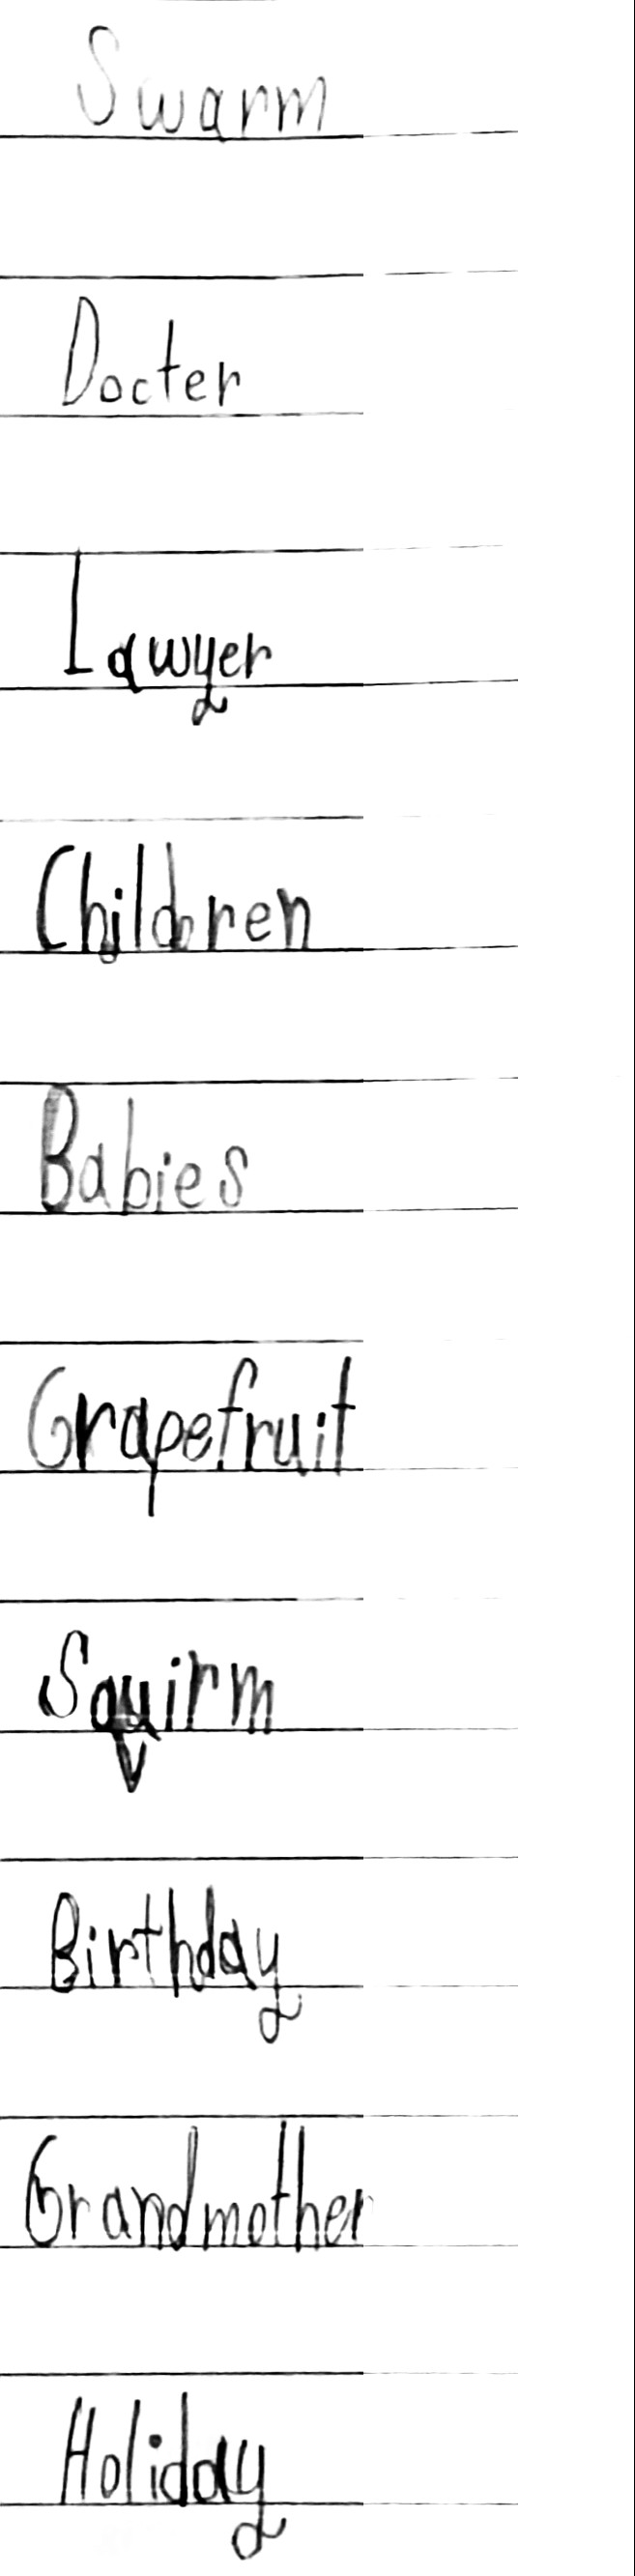 Swarm
Docter
Lawyer
Children
Babies
Grapefruit
Squirm
Birthday
Grandmother
Holiday